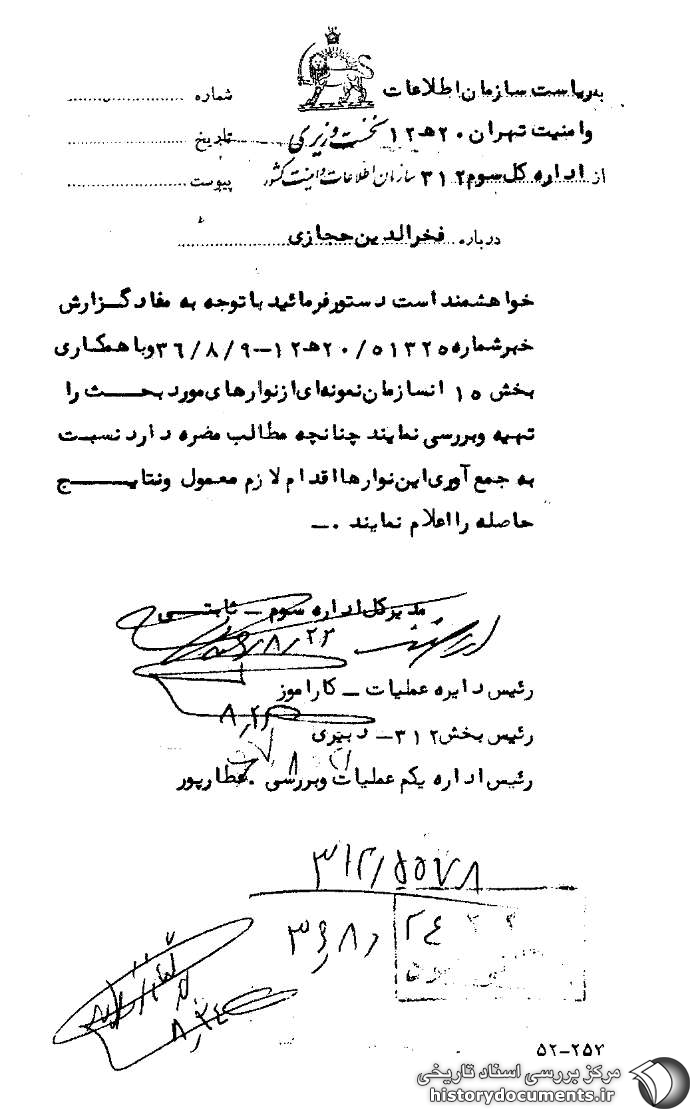 به ریاست سازمان اطلاعات
شماره
و امنیت تهران ۲۰ هـ ۱۲
نخست وزیری
تاریخ
از اداره کل سوم ۳۱۲
سازمان اطلاعات و امنیت کشور
پیوست
درباره فخرالدین حجازی
خواهشمند است دستور فرمائید با توجه به مفاد گزارش
خبر شماره ۵۱۳۲۵/ ۲۰ هـ ۱۲ – ۳۶/۸/۹ و با همکاری
بخش ۱۵ انسازمان نمونه‌ای از نوارهای مورد بحث را
تهیه و بررسی نمایند چنانچه مطالب مضره دارد نسبت
به جمع آوری این نوارها اقدام لازم معمول و نتایج
حاصله را اعلام نمایند ۰ــ
مدیرکل اداره سوم – ثابتی
۳۶/۸/۲۳
رئیس دایره عملیات – کارآموز
رئیس بخش ۳۱۲ – دبیری
رئیس اداره یکم عملیات و بررسی . عطارپور
۳۱۲/۵۵۷۸
۳۶/۸/
۲۴
۸/۲۴
۵۲-۲۵۷
مرکز بررسی اسناد تاریخی
historydocuments.ir